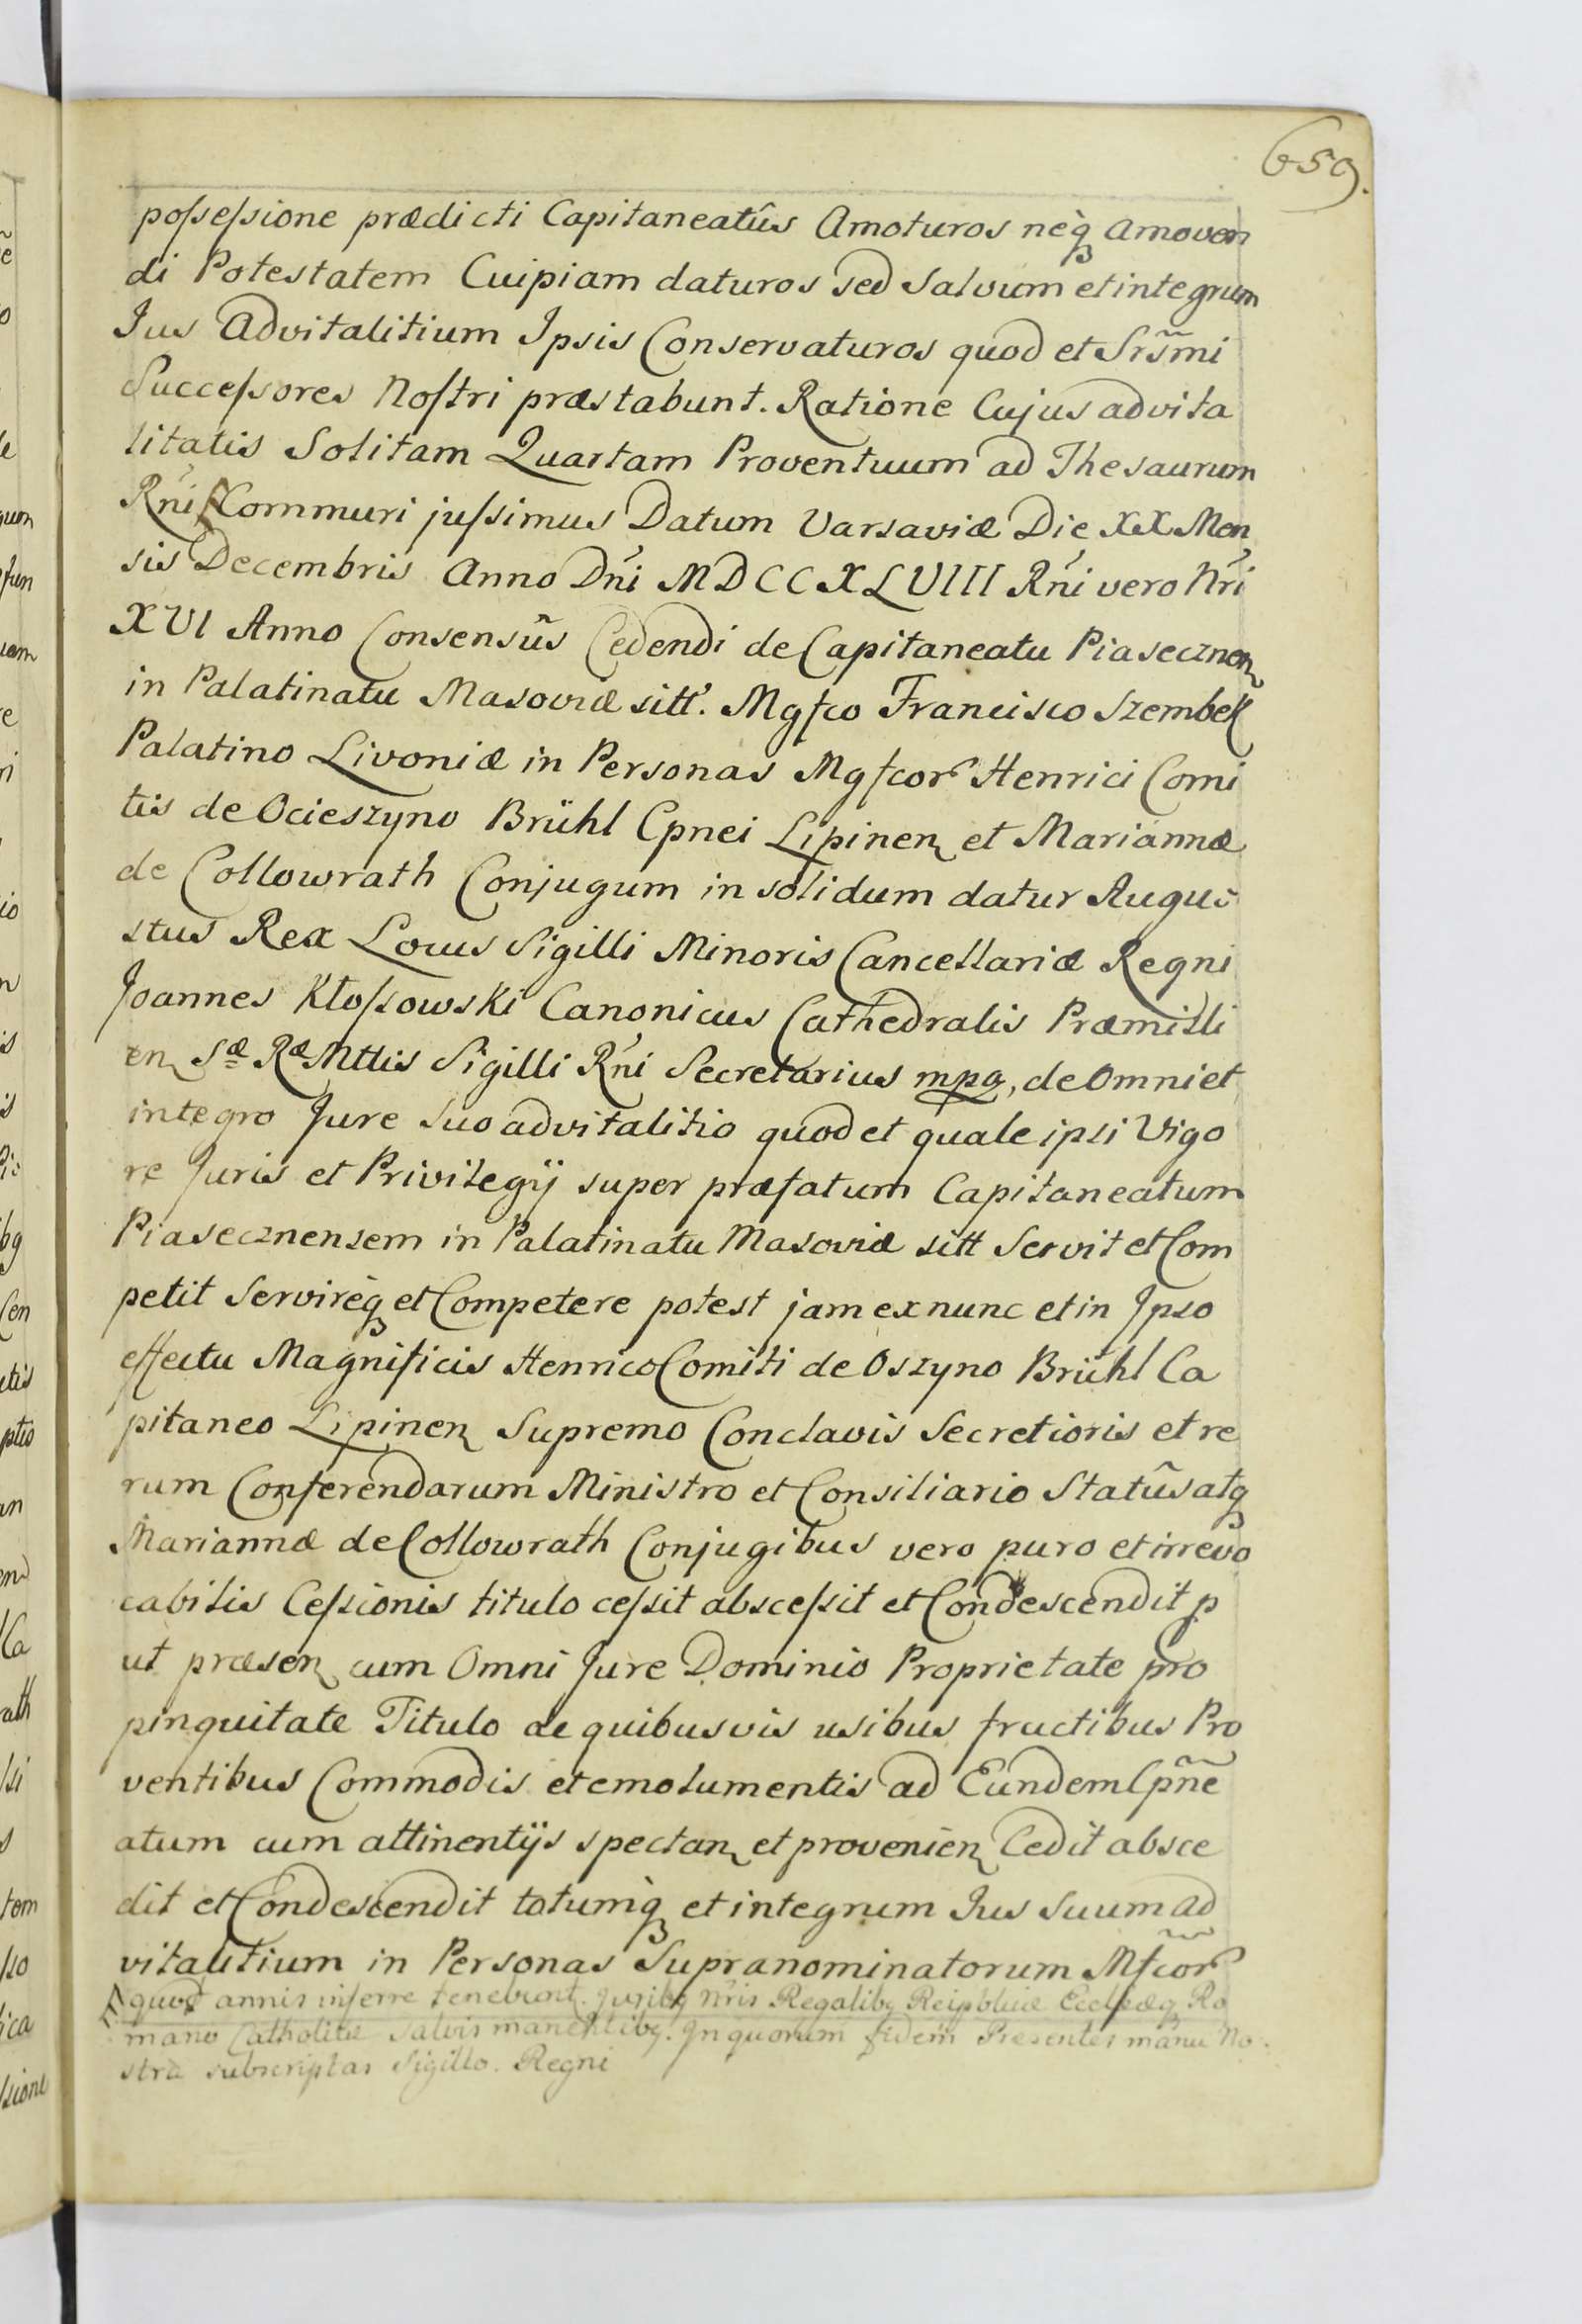 659.
possessione prædicti Capitaneatûs Amoturos neq̀ꝫ amoven
di Potestatem Cuipiam daturos sed Salvum et integrum
Jus Advitalitium Ipsis Conservaturos quod et Srs̃mi
Successores Nostri præstabunt. Ratione Cujus advita
litatis Solitam Quartam Proventuum ad Thesaurum
Rńi Commuri jussimus Datum Varsaviæ Die XX Men
sis Decembris Anno Dńi MDCCXLVIII Rńi vero Nŕi
XVI Anno Consensûs Cedendi de Capitaneatu Piasecznen
in Palatinatu Masoviæ sitt. Mgfco Francisco Szembek
Palatino Livoniæ in Personas Mgfcor Henrici Comi
tis de Ocieszyno Brühl Cpnei Lipinen et Mariannæ
de Collowrath Conjugum in solidum datur Augu
stus Rex Locus Sigilli Minoris Cancellariæ Regni
Joannes Kłossowski Canonicus Cathedralis Præmisli
en Sæ Ræ Mttis Sigilli Rńi Secretarius mpa, de Omni et
integro Jure Suo advitalitio quod et quale ipsi Vigo
re Juris et Privilegÿ super præfatum Capitaneatum
Piasecznensem in Palatinatu Masoviæ sitt Servit et Com
petit Servireq̀ꝫ et Competere potest jam ex nunc et in Ipso
effectu Magnificis Henrico Comiti de Oszyno Brühl Ca
pitaneo Lipinen Supremo Conclavis Secretioris et re
rum Conferendarum Ministro et Consiliario Statûs atqꝫ
Mariannæ de Collowrath Conjugibus vero puro et irrevo
cabilis Cessionis titulo cessit abscessit et Condescendit p
ut præsen cum Omni Jure Dominio Proprietate pro
pinquitate Titulo de quibusvis usibus fructibus Pro
ventibus Commodis et emolumentis ad Eundem Cpñe
atum cum attinentijs spectan et provenien Cedit absce
dit et Condescendit totumq̀ꝫ et integrum Jus Suum ad
vitalitium in Personas Supranominatorum Mfcor̃
quot annis inferre tenebunt. Juribꝫ Nris Regalibꝫ Reipblicæ Ecclæqꝫ Ro
mano Catholicæ salvis manentibꝫ. In quorum fidem Presentes manu No
stra subscriptas Sigillo. Regni